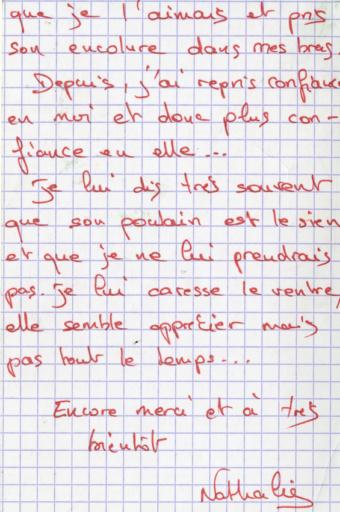 que je l'aimais et pris
son encolure dans mes bras.
Depuis, j'ai repris confiance
en moi et donc plus con-
fiance en elle...
Je lui dis très souvent
que son poulain est le sien
et que je ne lui prendrais
pas. Je lui caresse le ventre,
elle semble apprécier mais
pas tout le temps...
Encore merci et à très
bientôt
Nathalie